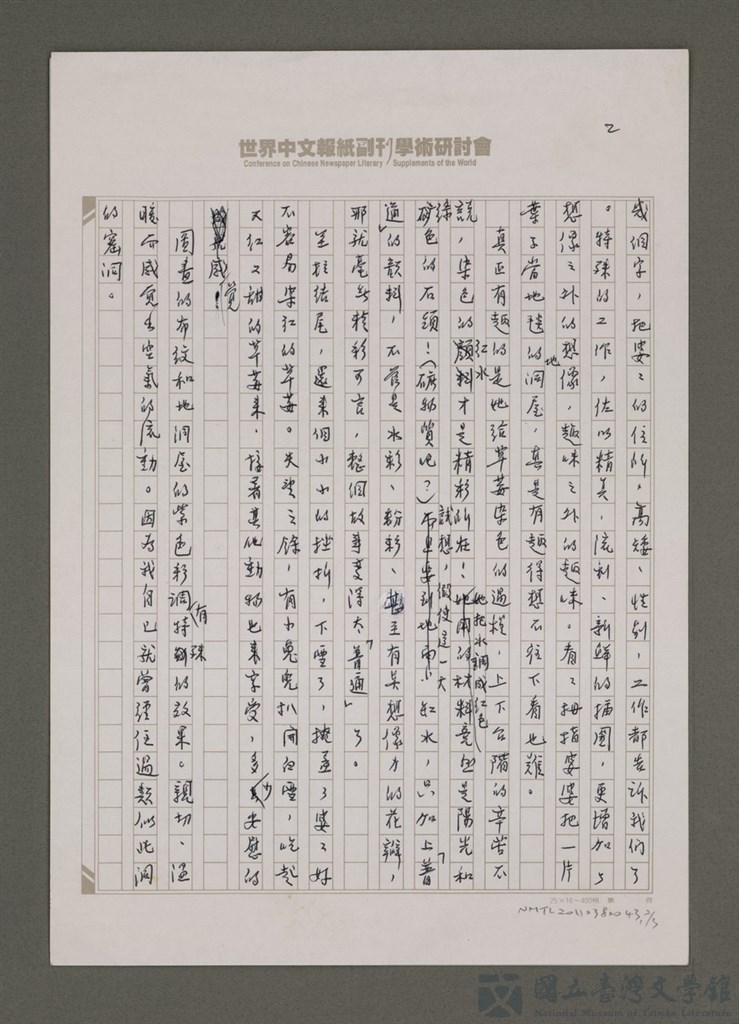 2
世界中文報紙副刊學術研討會
Conference on Chinese Newspaper Literary Supplements of the World
幾個字,把婆婆的住所,高矮、性別,工作都告訴我們了
。特殊的工作,佐以精美,流利、新鮮的插圖,更增加了
想像之外的想像,趣味之外的趣味。看看拇指婆婆把一片
葉子當地毯的地洞屋,真是有趣得想不往下看也難。
真正有趣的是她給草莓染色的過程,上下台階的辛苦不
說,染色的顏料才是精彩所在!她把水調成紅色紅水的材料竟然是陽光和
綠色的石頭!(礦物質吧?)試想,假使這一大紅水,只加上「普
通」的顏料,不管是水彩、粉彩、甚至有其想像力的花瓣,
那就毫無精彩可言,整個故事變得太「普通」了。
至於結尾,還來個小小的挫折,下雪了,掩蓋了婆婆好
不容易染紅的草莓。失望之餘,有小兔兒扒開白雪,吃起
又紅又甜的草莓來,接著其他動物也來享受,多少安慰的
感覺!
圖畫的布紋和地洞屋的紫色彩調有特殊的效果。親切、溫
暖而感覺出空氣的流動。因為我自已就曾經住過類似此洞
的窰洞。
25×16=400格 第 頁
NMTL20110380043,2/3
國立臺灣文學館
National Museum of Taiwan Literature